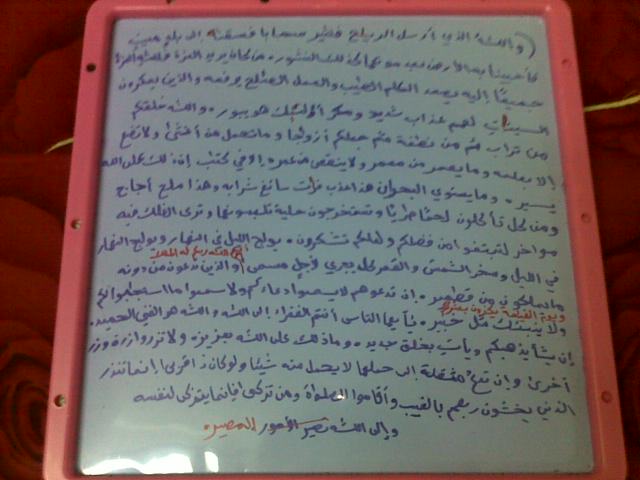 (والله الذي أرسل الرياح فتثير سحابا فسقنه إلى بلد ميت
فأحيينا به الأرض بعد موتها كذلك النشور من كان يريد العزة فلله العزة
جميعًا إليه يصعد الكلم الطيب والعمل الصلح يرفعه والذين يمكرون
السيئات لهم عذاب شديد ومكر أولئك هو يبور والله خلقكم
من تراب ثم من نطفة ثم جعلكم أزواجا وما تحمل من أنثى ولا تضع
إلا بعلمه وما يعمر من معمر ولا ينقص من عمره إلا في كتب إن ذلك على الله
يسير وما يستوي البحران هذا عذب فرات سائغ شرابه وهذا ملح أجاج
ومن كل تأكلون لحمًا طريًا وتستخرجون حلية تلبسونها وترى الفلك فيه
مواخر لتبتغوا من فضله ولعلكم تشكرون يولج الليل في النهار ويولج النهار
في الليل وسخر الشمس والقمر كل يجري لأجل مسمى والذين تدعون من دونه
ذلكم الله ربكم له الملك
ما يملكون من قطمير إن تدعوهم لا يسمعوا دعاءكم ولو سمعوا ما استجابوا لكم
ويوم القيمة يكفرون بشرككم
ولا ينبئك مثل خبير يأيها الناس أنتم الفقراء إلى الله والله هو الغني الحميد
إن يشأ يذهبكم ويأت بخلق جديد وما ذلك على الله بعزيز ولا تزر وازرة وزر
أخرى وإن تدع مثقلة إلى حملها لا يحمل منه شيئا ولو كان ذا قربى إنما تنذر
الذين يخشون ربهم بالغيب وأقاموا الصلوة ومن تزكى فإنما يتزكى لنفسه
وإلى الله تصير الأمور المصير